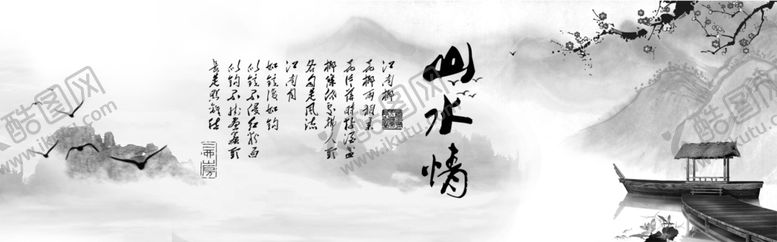 山水情
江南柳
花柳两相柔
花片落时粘酒盏
柳条低处拂人头
各自是风流
江南月
如镜复如钩
似镜不侵红粉面
似钩不挂画帘头
长是照离愁
酷图网
www.ikutu.com